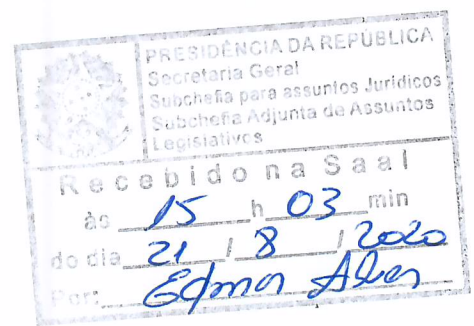 PRESIDÊNCIA DA REPÚBLICA
Secretaria Geral
Subchefia para assuntos Jurídicos
Subchefia Adjunta de Assuntos
Legislativos
Recebido na Saal
às 15 h 03 min
do dia 21 / 8 / 2020
Por: Edmar Alves